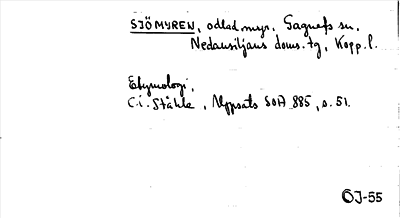 SJÖMYREN, odlad myr, Gagnefs sn.
Nedansiljans doms.tg, Kopp.l.
Etymologi.
C.i. Ståhle, Uppsats SOA 885, s. 51.
ÖJ-55